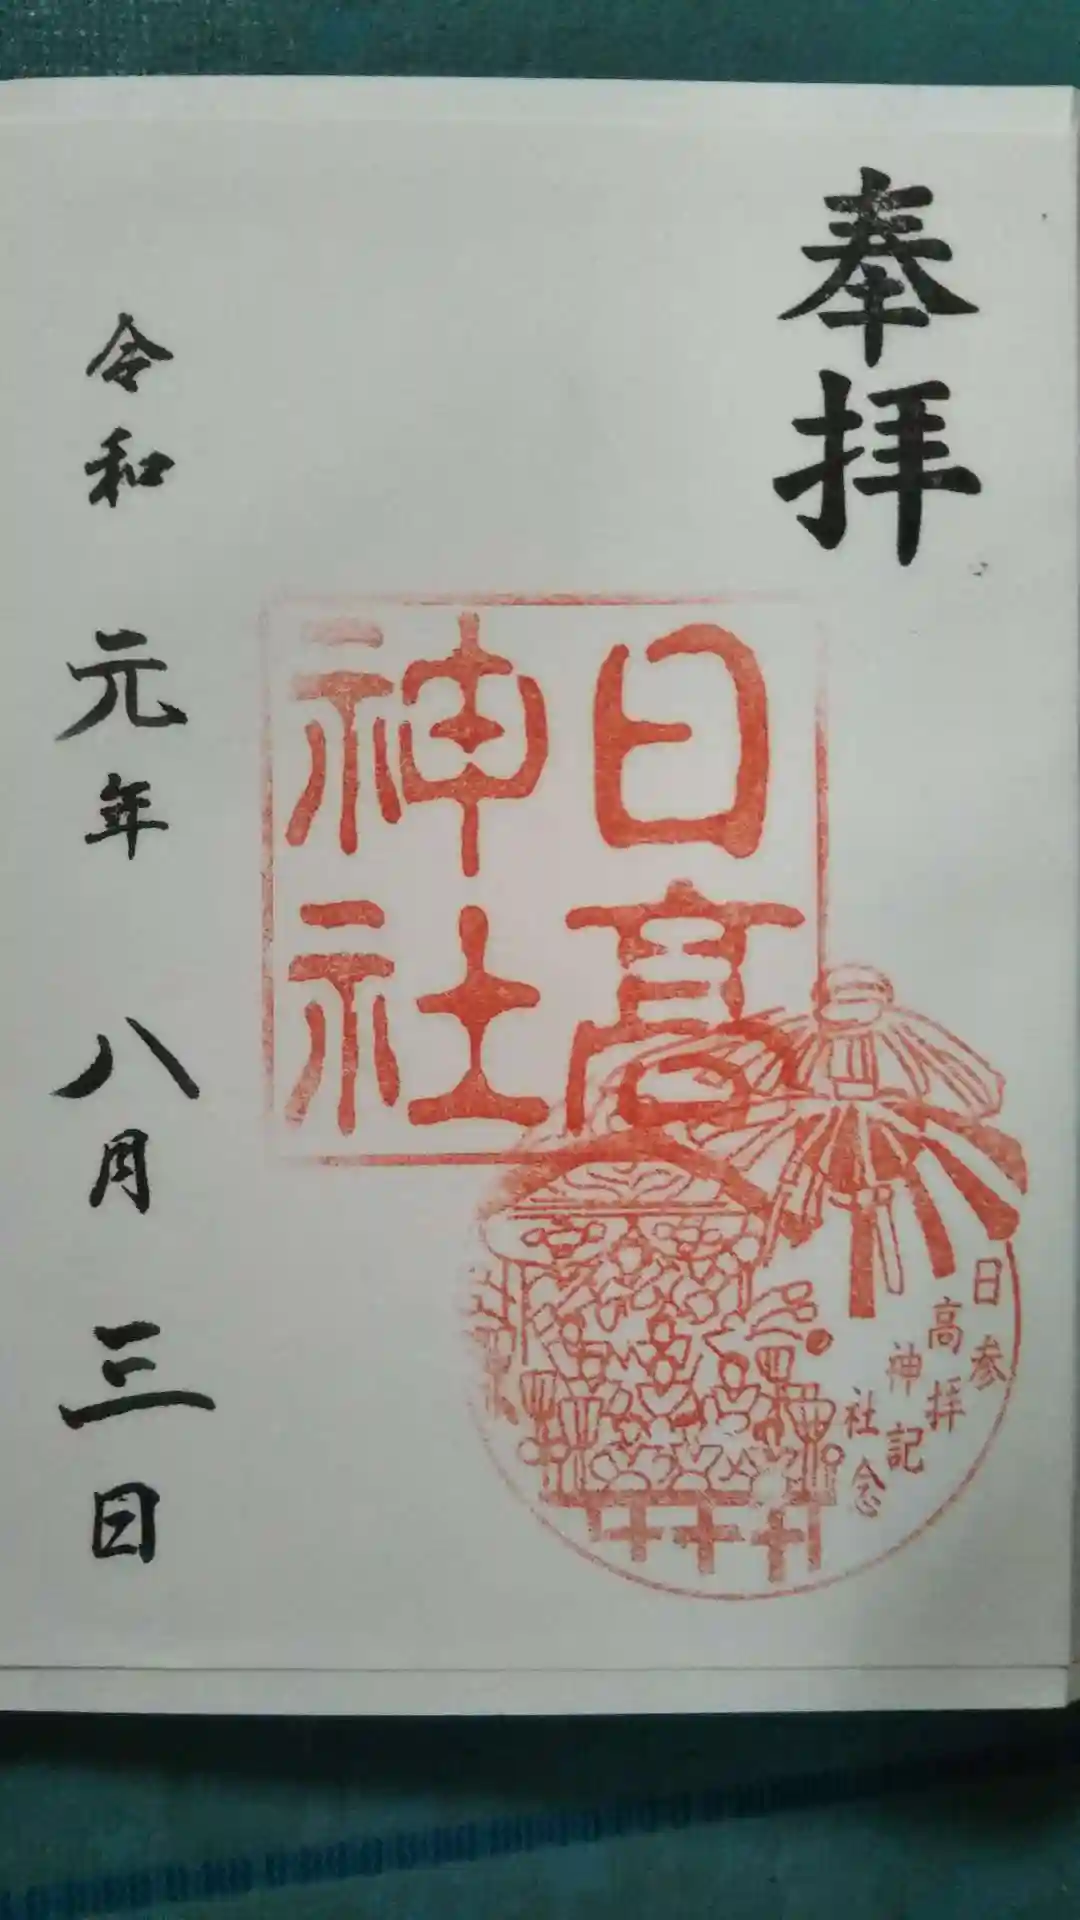 奉拝
日高
神社
日高神社
参拝記念
令和 元年 八月 三日